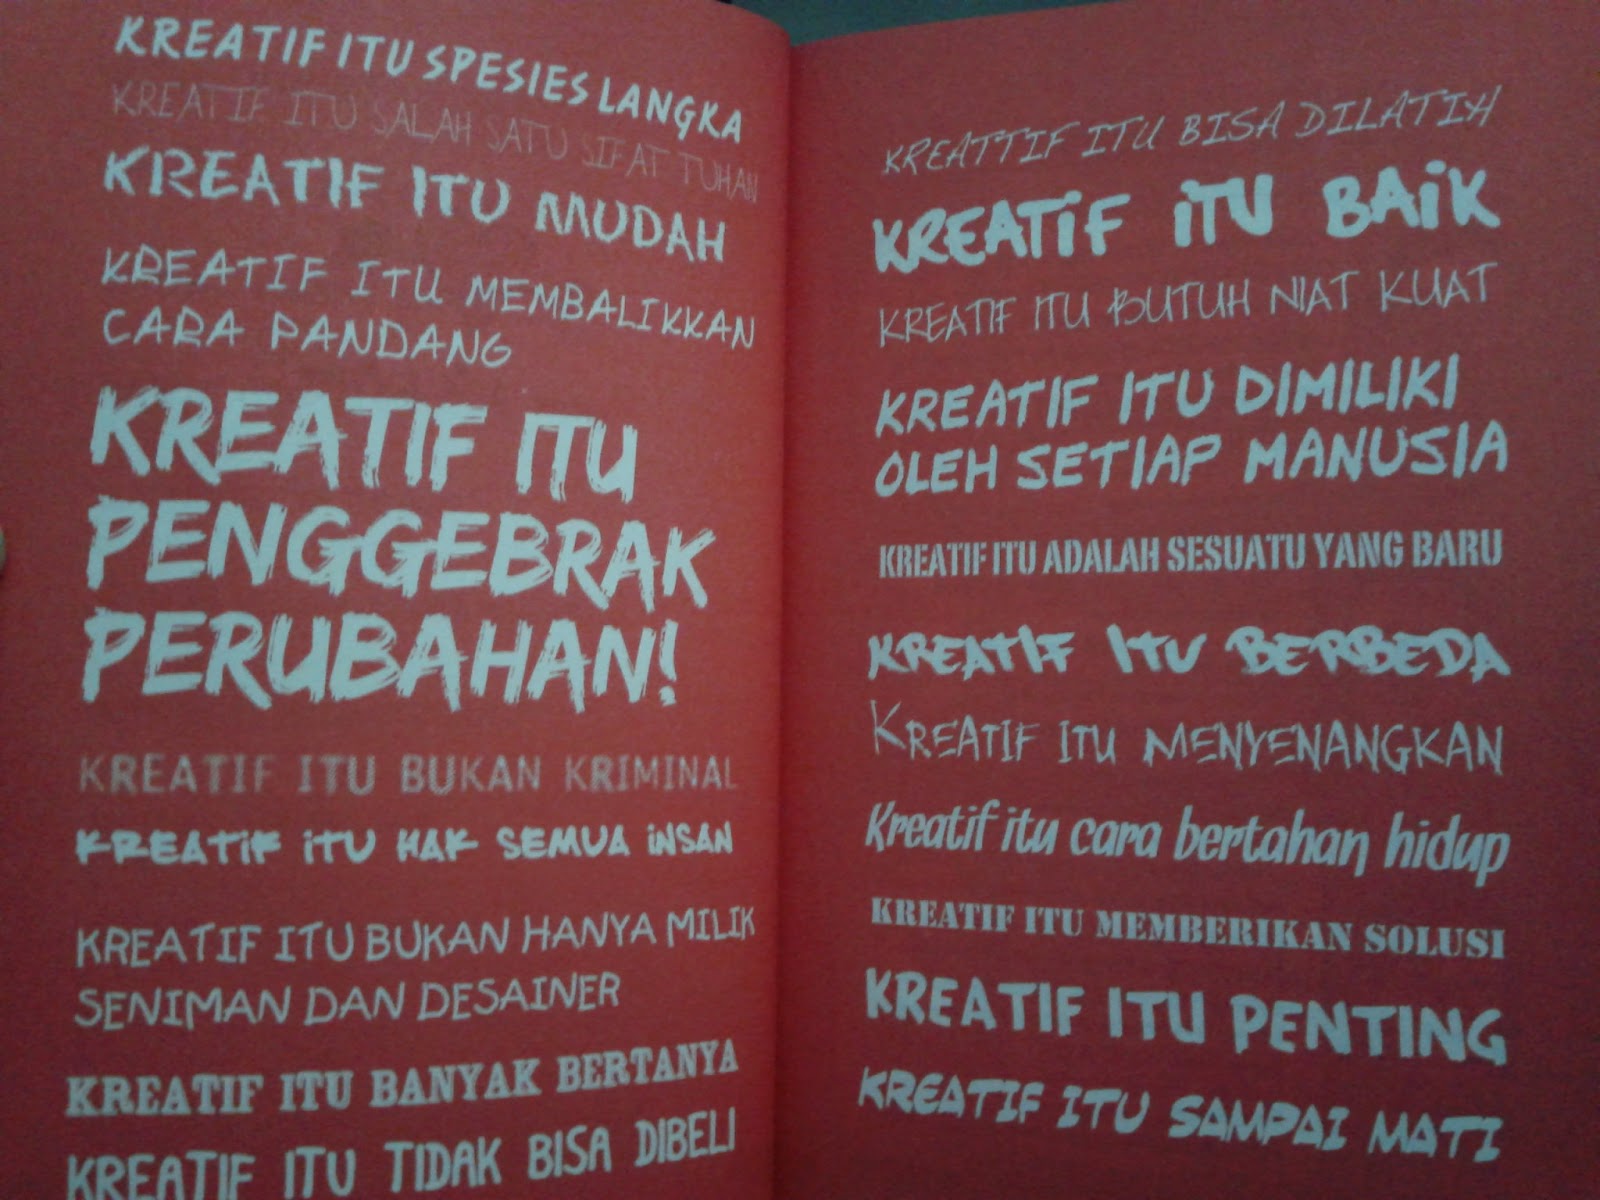 KREATIF ITU SPESIES LANGKA
KREATIF ITU SALAH SATU SIFAT TUHAN
KREATIF ITU MUDAH
KREATIF ITU MEMBALIKKAN
CARA PANDANG
KREATIF ITU
PENGGEBRAK
PERUBAHAN!
KREATIF ITU BUKAN KRIMINAL
KREATIF ITU HAK SEMUA INSAN
KREATIF ITU BUKAN HANYA MILIK
SENIMAN DAN DESAINER
KREATIF ITU BANYAK BERTANYA
KREATIF ITU TIDAK BISA DIBELI
KREATTIF ITU BISA DILATIH
KREATIF ITU BAIK
KREATIF ITU BUTUH NIAT KUAT
KREATIF ITU DIMILIKI
OLEH SETIAP MANUSIA
KREATIF ITU ADALAH SESUATU YANG BARU
KREATIF ITU BERBEDA
KREATIF ITU MENYENANGKAN
Kreatif itu cara bertahan hidup
KREATIF ITU MEMBERIKAN SOLUSI
KREATIF ITU PENTING
KREATIF ITU SAMPAI MATI